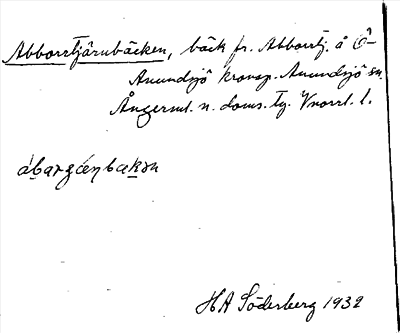 Abborrtjärnbäcken, bäck fr. Abborrtj. å Ö-
Anundsjö kronop. Anundsjö sn.
Ångerml. n. doms. tg. Vnorrl. l.
HA Söderberg 1932